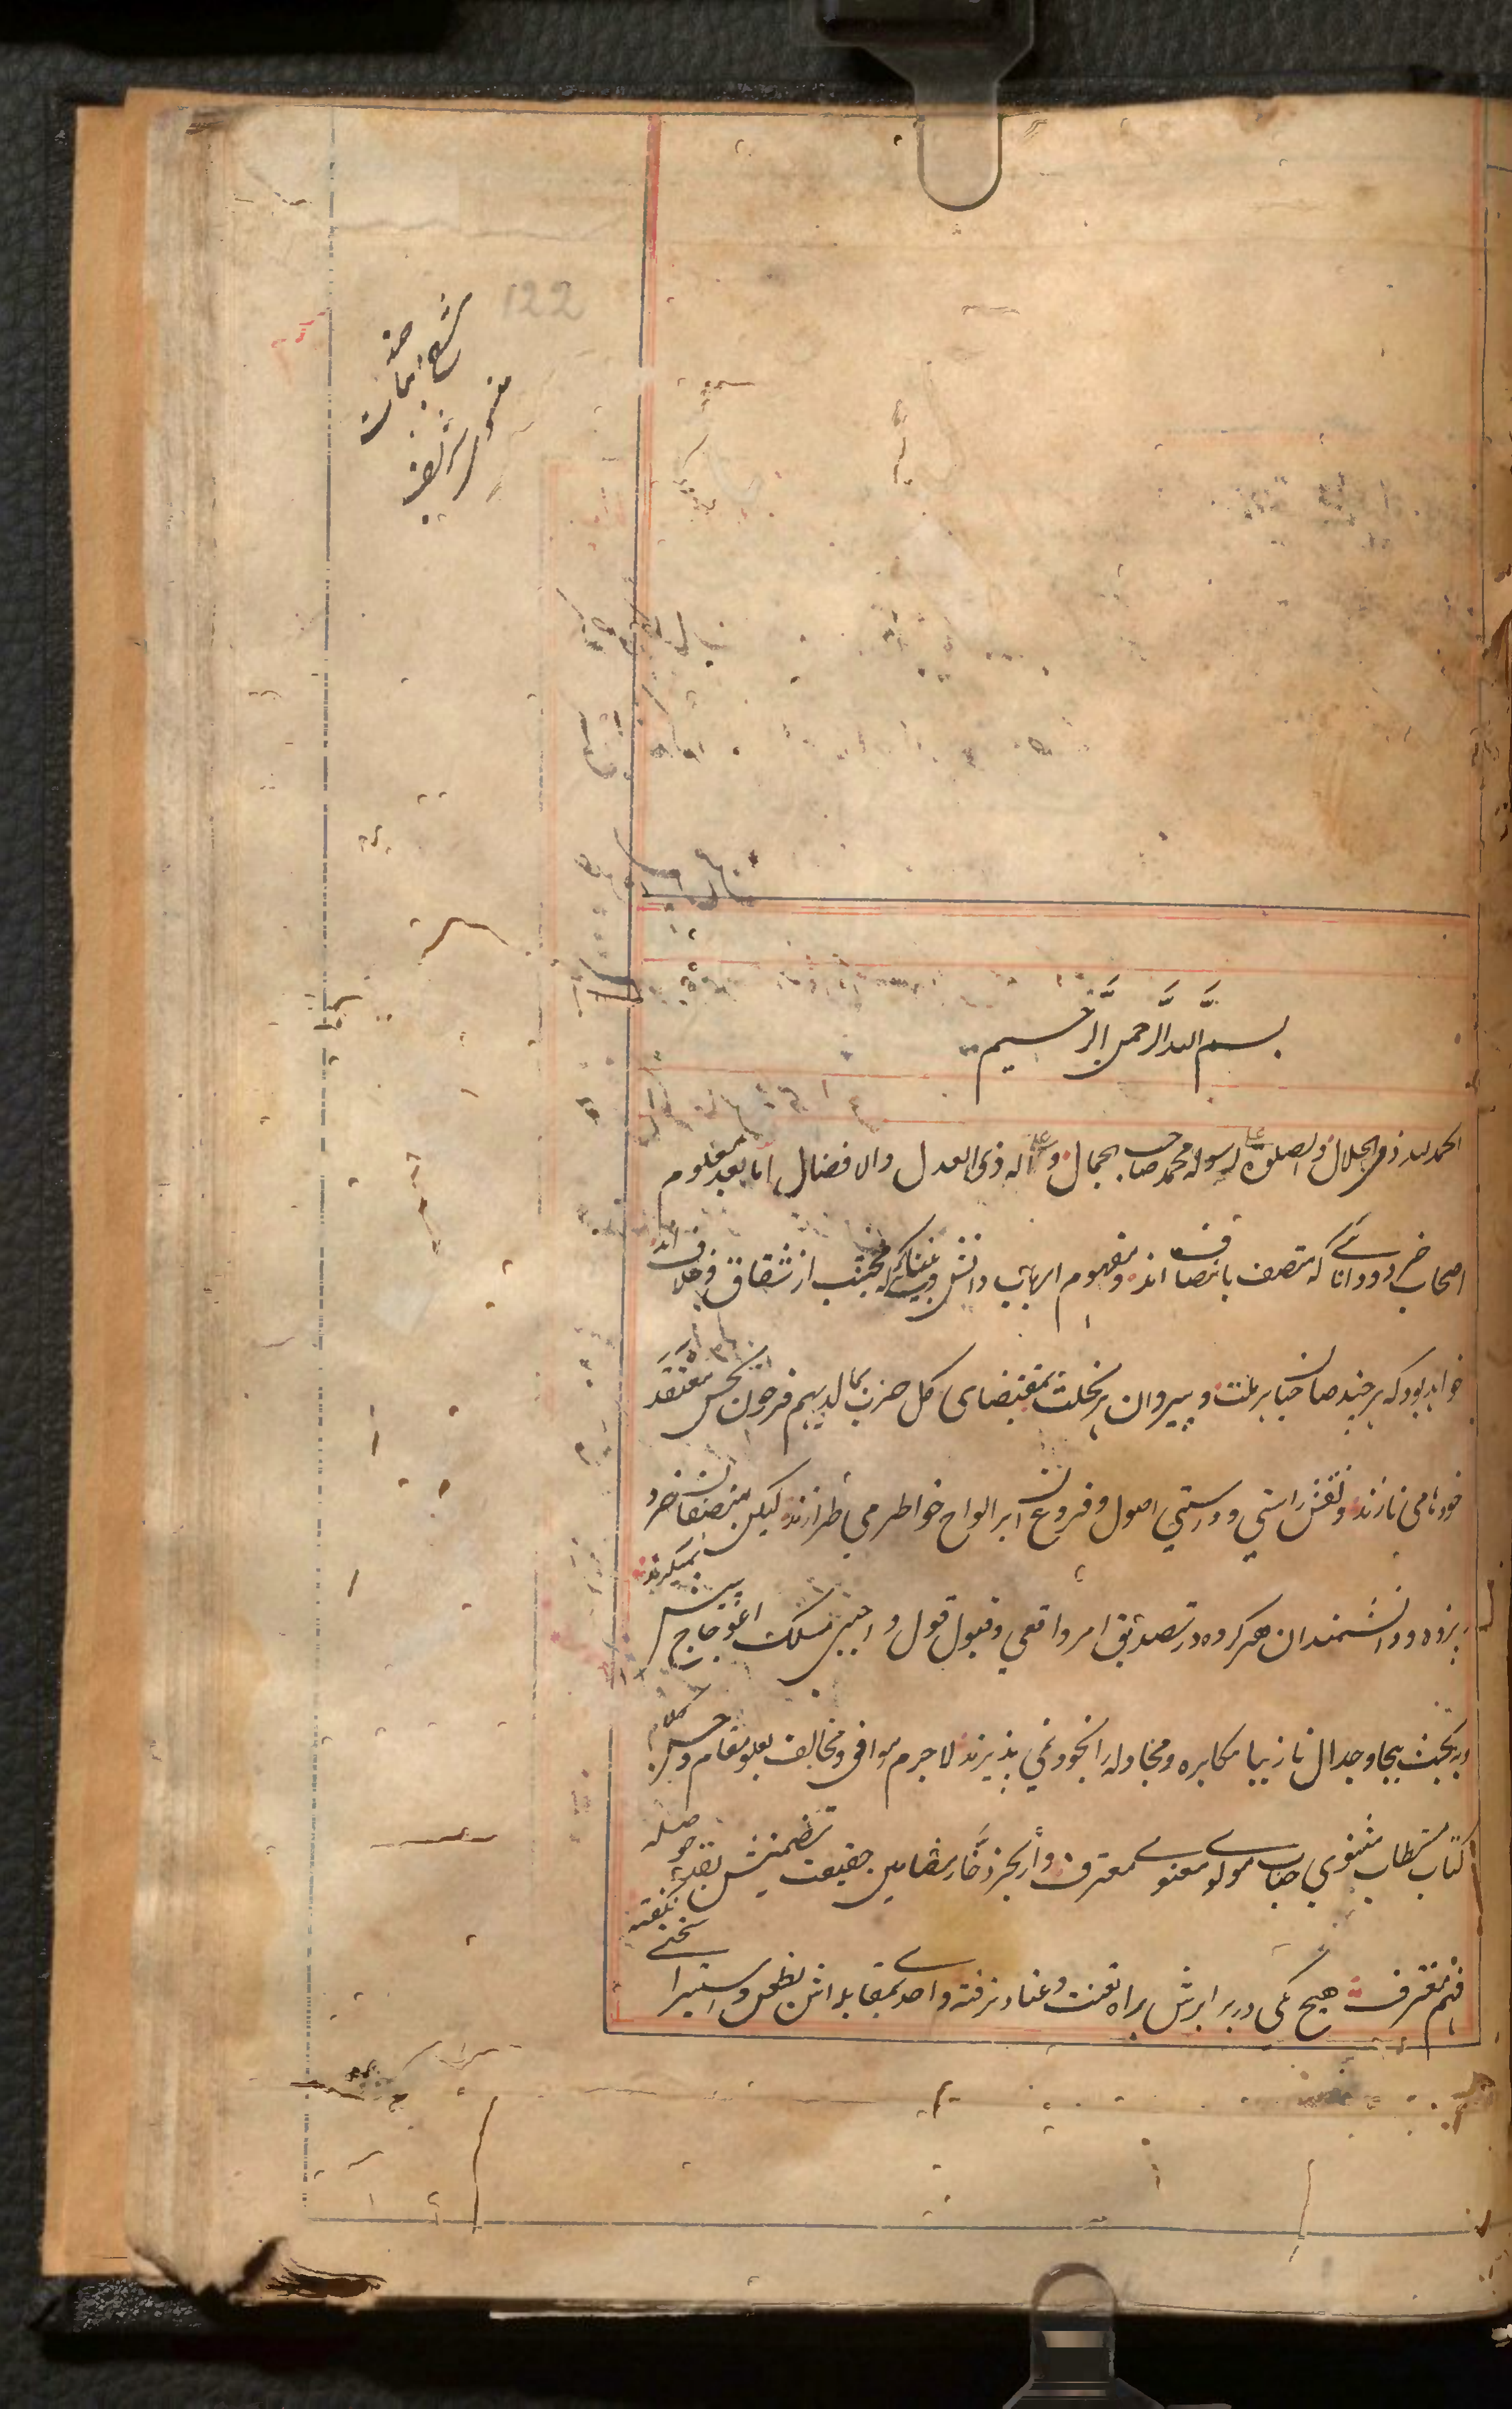 122
شرح ابیات
مثنوی شریف
بسم الله الرحمن الرحیم
الحمد لله ذی الجلال والصلوة علی رسوله محمد صاحب الجمال و علی آله ذی العدل والافضال اما بعد معلوم
اصحاب خرد و دانائی که متصف بانصاف اند و مفهوم ارباب دانش و بینائی که مجتنب از شقاق و خلاف اند
خواهد بود که هر چند صاحبان هر ملت و پیروان هر نحلت بمقتضای کل حزب بما لدیهم فرحون بحسن معتقد
خودها می نازند و نقش راستی و درستی اصول و فروع آن بر الواح خواطر می طرازند لیکن منصفان خرد
پژوه و دانشمندان هر گروه در تصدیق امر واقعی و قبول قول واجبی مسلک اعوجاج پیش نمیگیرند
و بحث بیجا و جدال نازیبا مکابره و مجادله را بخود نمی پذیرند لاجرم موافق و مخالف بعلو مقام و حسن کلام
کتاب مستطاب مثنوی جناب مولوی معنوی معترف و از بحر ذخار مضامین حقیقت تضمینش بقدر حوصله
فهم مغترف هیچ یکی در برابرش براه تعنت و عناد نرفته و احدی بمقابله اش بطعن و استهزا سخنی نگفته